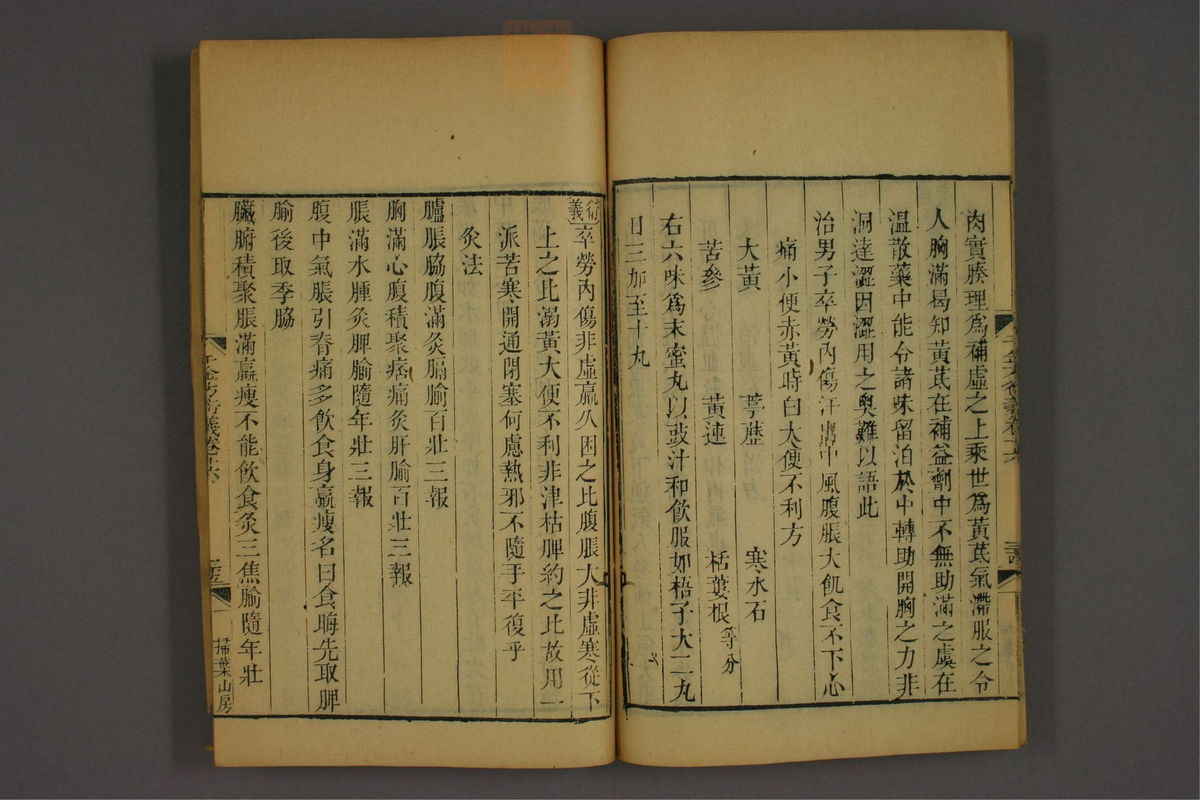 肉實腠理爲補虛之上乘世爲黃芪氣滯服之令
人胸滿曷知黃芪在補益劑中不無助滿之虞在
溫散藥中能令諸味留泊於中轉助開胸之力非
洞達澀因澀用之奧難以語此
治男子卒勞內傷汗出中風腹脹大飢食不下心
痛小便赤黃時白大便不利方
大黃 葶藶 寒水石
苦參 黃連 栝蔞根等分
右六味爲末蜜丸以豉汁和飲服如梧子大二丸
日三加至十丸
衍義
卒勞內傷非虛羸久困之比腹脹大非虛寒從下
上之比溺黃大便不利非津枯脾約之比故用一
派苦寒開通閉塞何慮熱邪不隨手平復乎
灸法
臚脹脇腹滿灸膈腧百壯三報
胸滿心腹積聚痞痛灸肝腧百壯三報
脹滿水腫灸脾腧隨年壯三報
腹中氣脹引脊痛多飲食身羸瘦名曰食晦先取脾
腧後取季脇
臟腑積聚脹滿羸瘦不能飲食灸三焦腧隨年壯
千金方衍義卷十六
掃葉山房